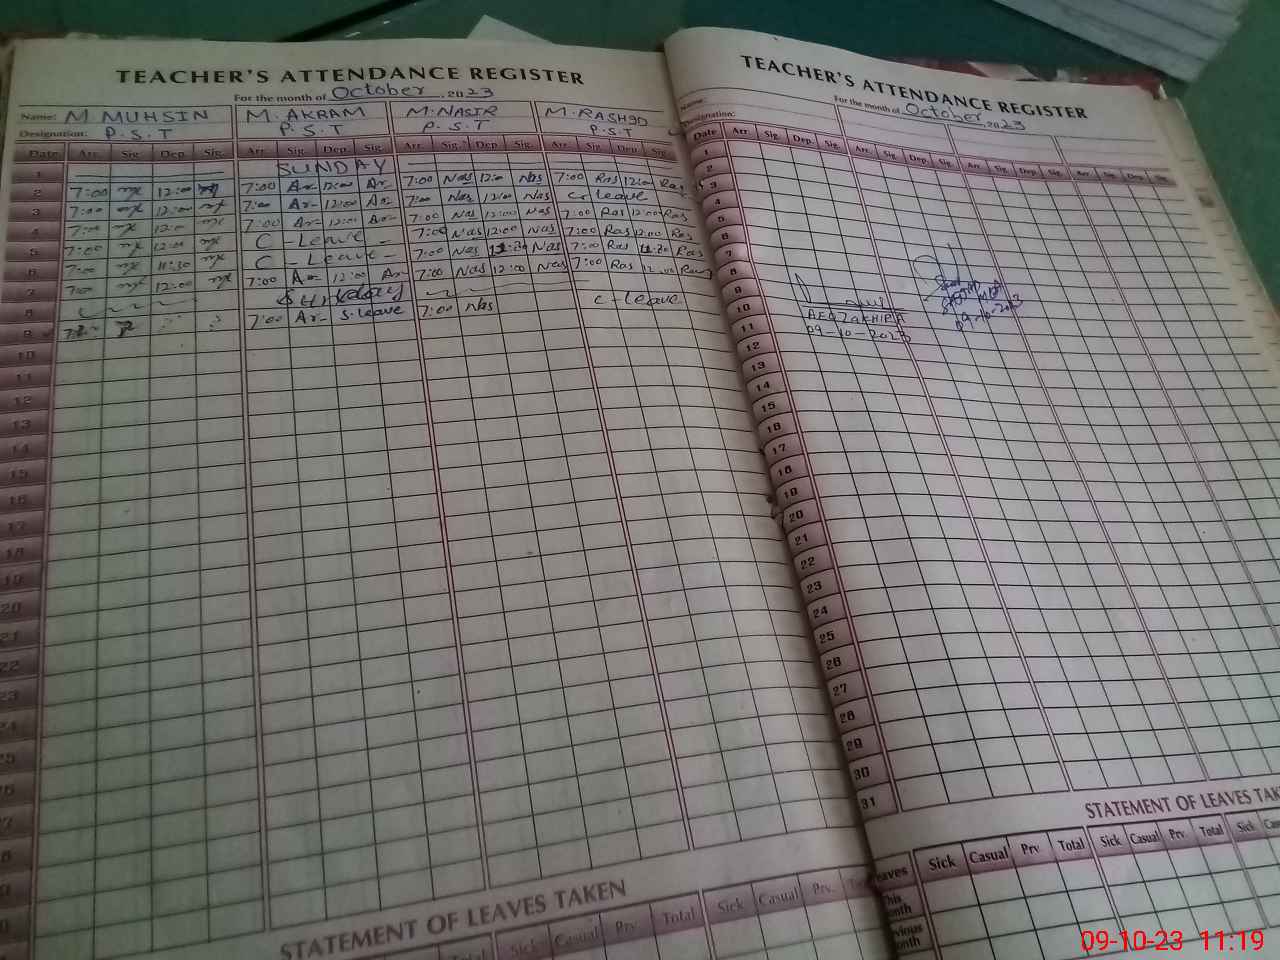 TEACHER'S ATTENDANCE REGISTER
For the month of October 2023
Name: M. MUHSIN M. AKRAM M. NASIR M. RASHID
Designation: P.S.T P.S.T P.S.T P.S.T
Date Arr. Sig. Dep. Sig. Arr. Sig. Dep. Sig. Arr. Sig. Dep. Sig. Arr. Sig. Dep. Sig.
1 SUNDAY
2 7:00 12:00 7:00 Ar 12:00 Ar 7:00 Nas 12:00 Nas 7:00 Ras 12:00 Ras
3 7:00 12:00 7:00 Ar 12:00 Ar 7:00 Nas 12:00 Nas C-leave
4 7:00 12:00 7:00 Ar 12:00 Ar 7:00 Nas 12:00 Nas 7:00 Ras 12:00 Ras
5 7:00 12:00 C - Leave - 7:00 Nas 12:00 Nas 7:00 Ras 12:00 Ras
6 7:00 11:30 C - Leave - 7:00 Nas 11:30 Nas 7:00 Ras 11:30 Ras
7 7:00 12:00 7:00 Ar 12:00 Ar 7:00 Nas 12:00 Nas 7:00 Ras 12:00
8 Sunday
9 7:00 Ar S-leave 7:00 Nas C-leave
10
11
12
13
14
15
16
17
18
19
20
21
22
23
24
25
STATEMENT OF LEAVES TAKEN
Total Sick Casual Prv. Total Sick Casual Prv.
TEACHER'S ATTENDANCE REGISTER
For the month of October 2023
Name:
Designation:
Date Arr. Sig. Dep. Sig. Arr. Sig. Dep. Sig. Arr. Sig. Dep. Sig. Arr. Sig. Dep. Sig.
1
2
3
4
5
6
7
8
9
10
11
12
13
14
15
16
17
18
19
20
21
22
23
24
25
26
27
28
29
30
31
09-10-2023
09-10-2023
STATEMENT OF LEAVES TAK
eaves Sick Casual Prv Total Sick Casual Prv. Total Sick
09-10-23 11:19